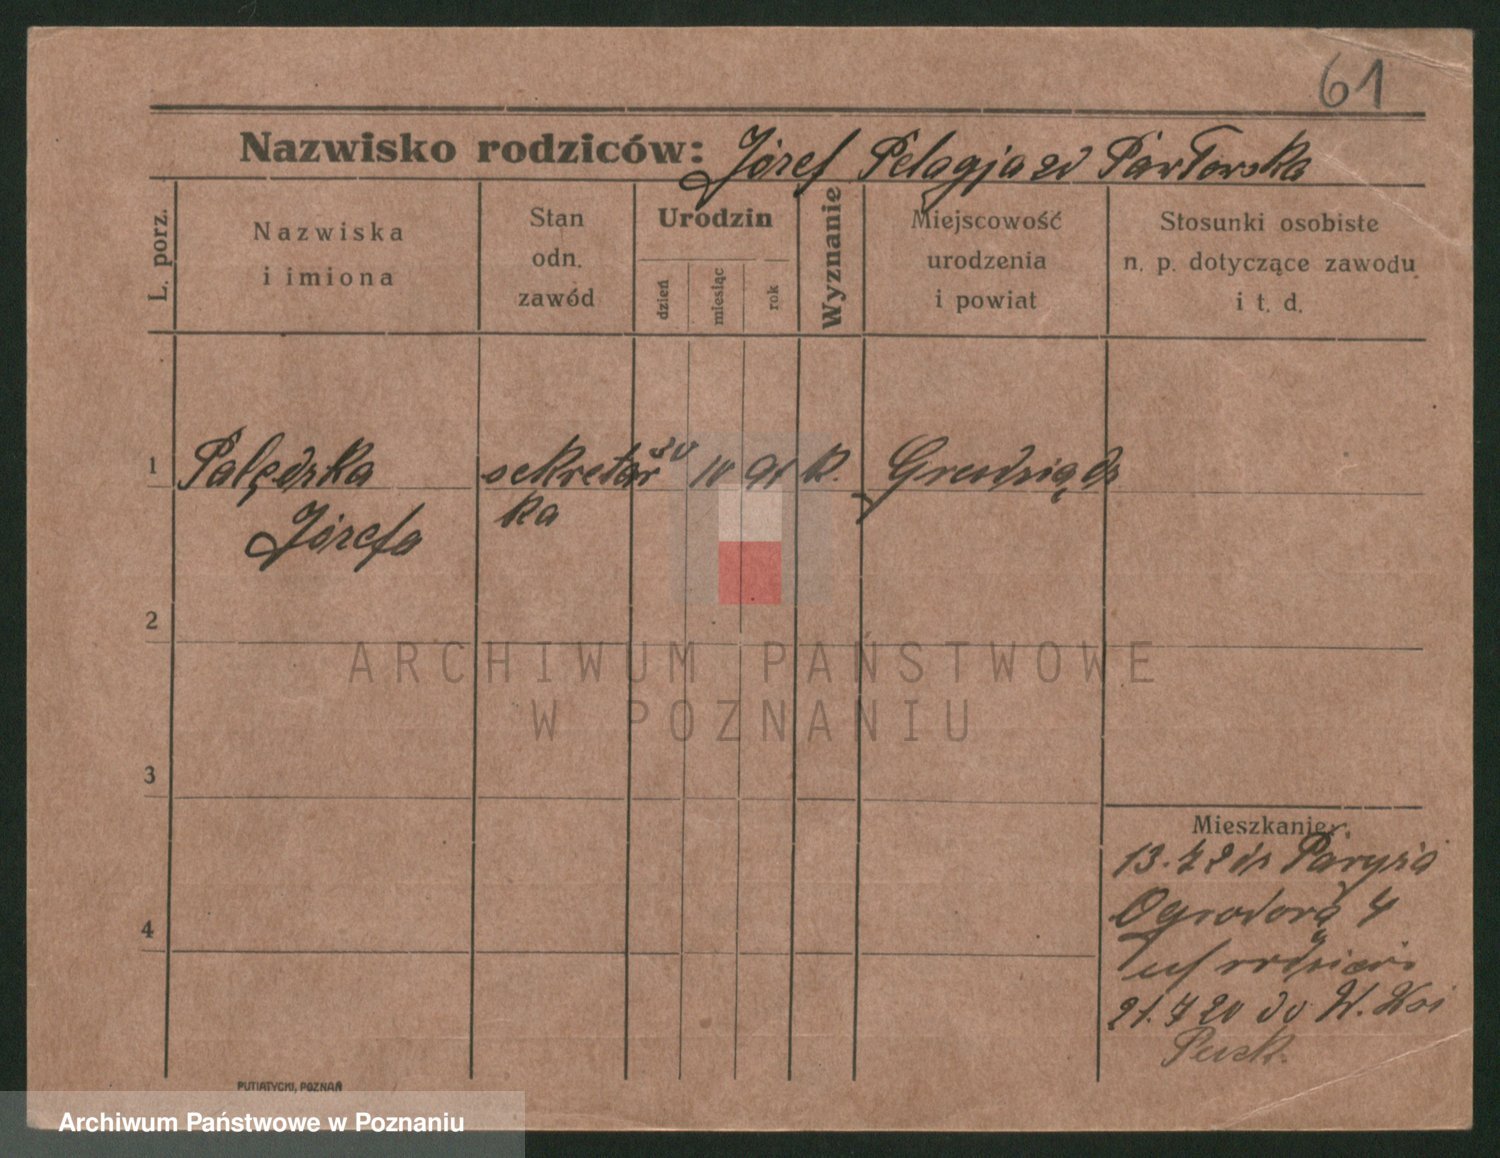 61
Nazwisko rodziców: Józef Pelagja zd Pawłowska
L. porz.
Nazwiska
i imiona
Stan
odn.
zawód
Urodzin
dzień
miesiąc
rok
Wyznanie
Miejscowość
urodzenia
i powiat
Stosunki osobiste
n. p. dotyczące zawodu
i t. d.
1 Palędzka sekretar 20 10 91 k. Grudziądz
Józefa ka
2
ARCHIWUM PAŃSTWOWE
W POZNANIU
3
4
Mieszkanie:
13. 4 20 Paryża
Ogrodowa 4
rodzicói
21. 4 20 do W.
PUTIATYCKI, POZNAŃ
Archiwum Państwowe w Poznaniu